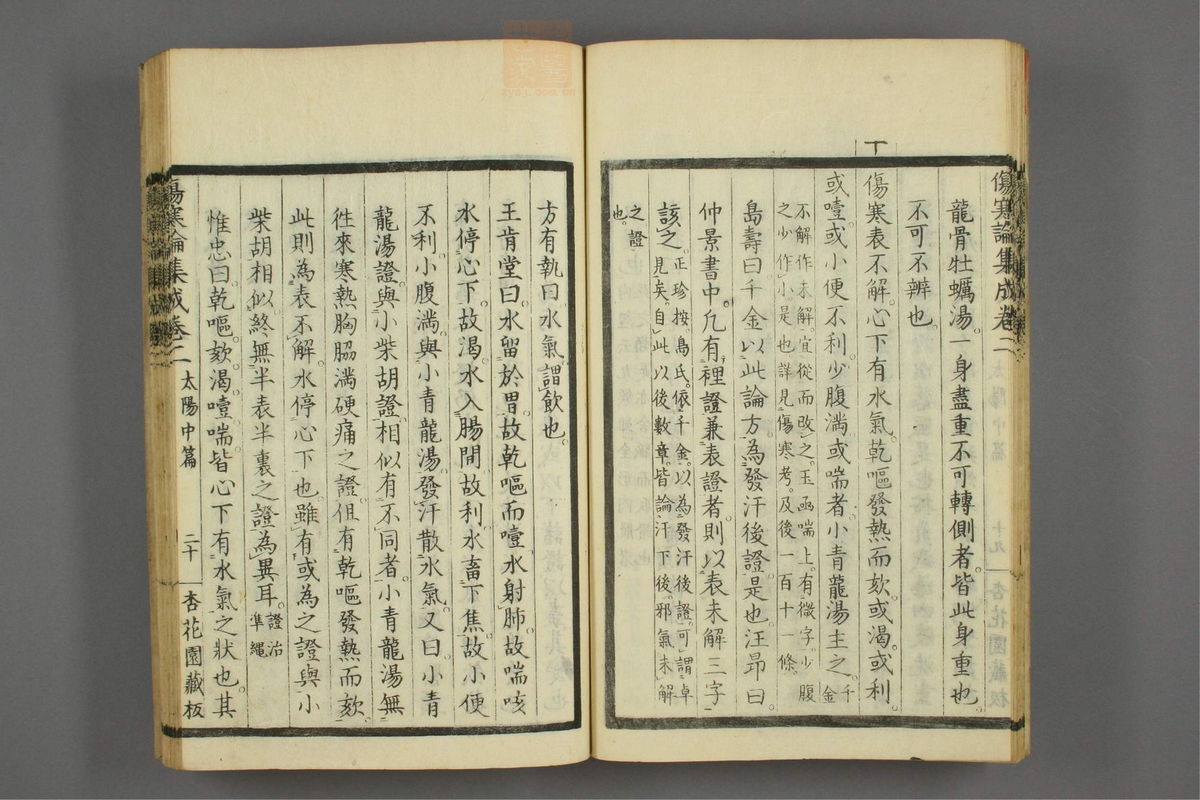 十
龍骨牡蠣湯。一身盡重不可轉側者。皆此身重也。
不可不辨也。
傷寒表不解。心下有水氣。乾嘔發熱而欬。或渴。或利
或噎。或小便不利。少腹満。或喘者。小青龍湯主之。千金
不解作未解。宜從而改之。玉函喘上。有微字。少腹
之少作小。是也。詳見傷寒考。及後一百十一條。
島壽曰。千金以此論方。為發汗後證。是也。汪昂曰
仲景書中。凡有裡證兼表證者。則以表未解三字
該之。正珍按。島氏依千金。以為發汗後證。可謂卓
見矣。自此以後數章。皆論汗下後。邪氣未解
之證
也。
方有執曰。水氣謂飲也。
王肯堂曰。水留於胃。故乾嘔而噎。水射肺。故喘咳
水停心下。故渴。水入腸間。故利。水畜下焦。故小便
不利。小腹満。與小青龍湯。發汗散水氣。又曰。小青
龍湯證。與小柴胡證相似。有不同者。小青龍湯。無
往來寒熱胸脇満硬痛之證。但有乾嘔發熱而欬。
此則為表不解。水停心下也。雖有或為之證。與小
柴胡相似。終無半表半裏之證。為異耳。證治
準繩
惟忠曰。乾嘔。欬。渴。噎。喘。皆心下有水氣之狀也。其
傷寒論集成卷二 太陽中篇 二十 杏花園藏板